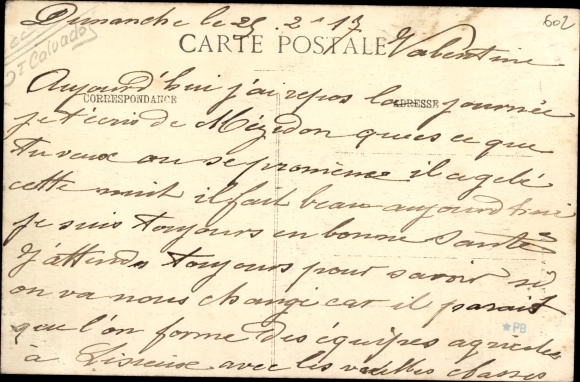 Dimanche le 25. 2 - 17
602
CARTE POSTALE
Valentine
Dt Calvados
Aujourd'hui j'ai repos la journée
CORRESPONDANCE
ADRESSE
je t'écris de Mézidon ques ce que
tu veux on se promène il a gelé
cette nuit il fait beau aujourd'hui
je suis toujours en bonne santé
J'attends toujours pour savoir si
on va nous changé car il parait
*PB
que l'on forme des équipes agricoles
à Lisieux avec les vieilles classes